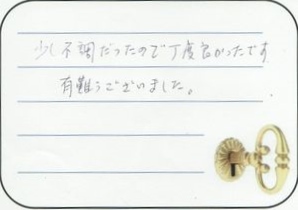 少し不調だったので丁度良かったです
有難うございました。